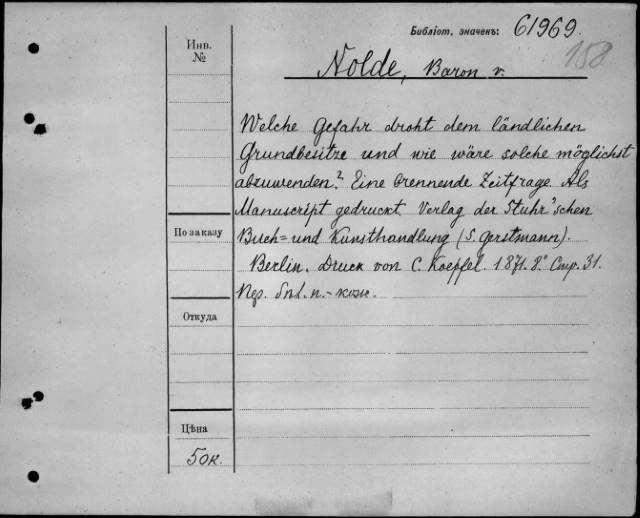 Библіот. значекъ: 61969.
158
Инв. №
Nolde, Baron v.
Welche Gefahr droht dem ländlichen
Grundbesitze und wie wäre solche möglichst
abzuwenden? Eine brennende Zeitfrage. Als
Manuscript gedruckt. Verlag der Stuhr'schen
По заказу
Buch= und Kunsthandlung (S. Gerstmann).
Berlin. Druck von C. Koepfel. 1871. 8°. Стр. 31.
Пер.
Откуда
Цѣна
50к.